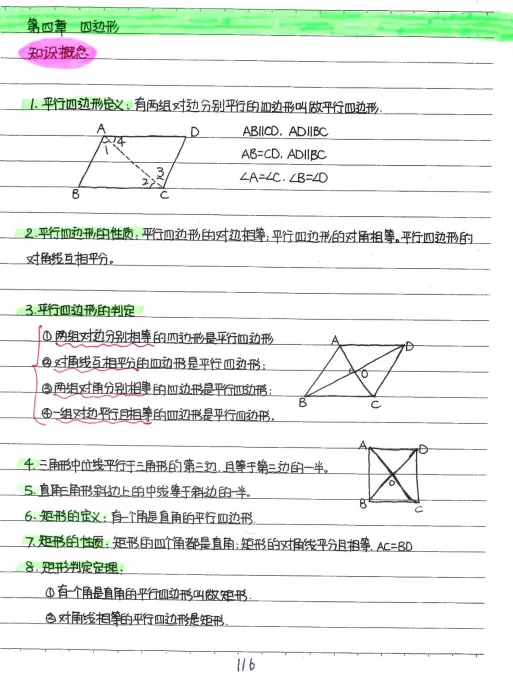 第四章 四边形
知识概念
1. 平行四边形定义:有两组对边分别平行的四边形叫做平行四边形.
A D
1 4
2 3
B C
AB∥CD, AD∥BC
AB=CD, AD∥BC
∠A=∠C, ∠B=∠D
2.平行四边形的性质:平行四边形的对边相等;平行四边形的对角相等。平行四边形的
对角线互相平分。
3.平行四边形的判定
①两组对边分别相等的四边形是平行四边形
②对角线互相平分的四边形是平行四边形;
③两组对角分别相等的四边形是平行四边形;
④一组对边平行且相等的四边形是平行四边形.
A D
O
B C
4. 三角形中位线平行于三角形的第三边,且等于第三边的一半。
5. 直角三角形斜边上的中线等于斜边的一半。
6. 矩形的定义:有一个角是直角的平行四边形.
A D
O
B C
7. 矩形的性质:矩形的四个角都是直角;矩形的对角线平分且相等. AC=BD
8. 矩形判定定理:
①有一个角是直角的平行四边形叫做矩形.
②对角线相等的平行四边形是矩形.
116